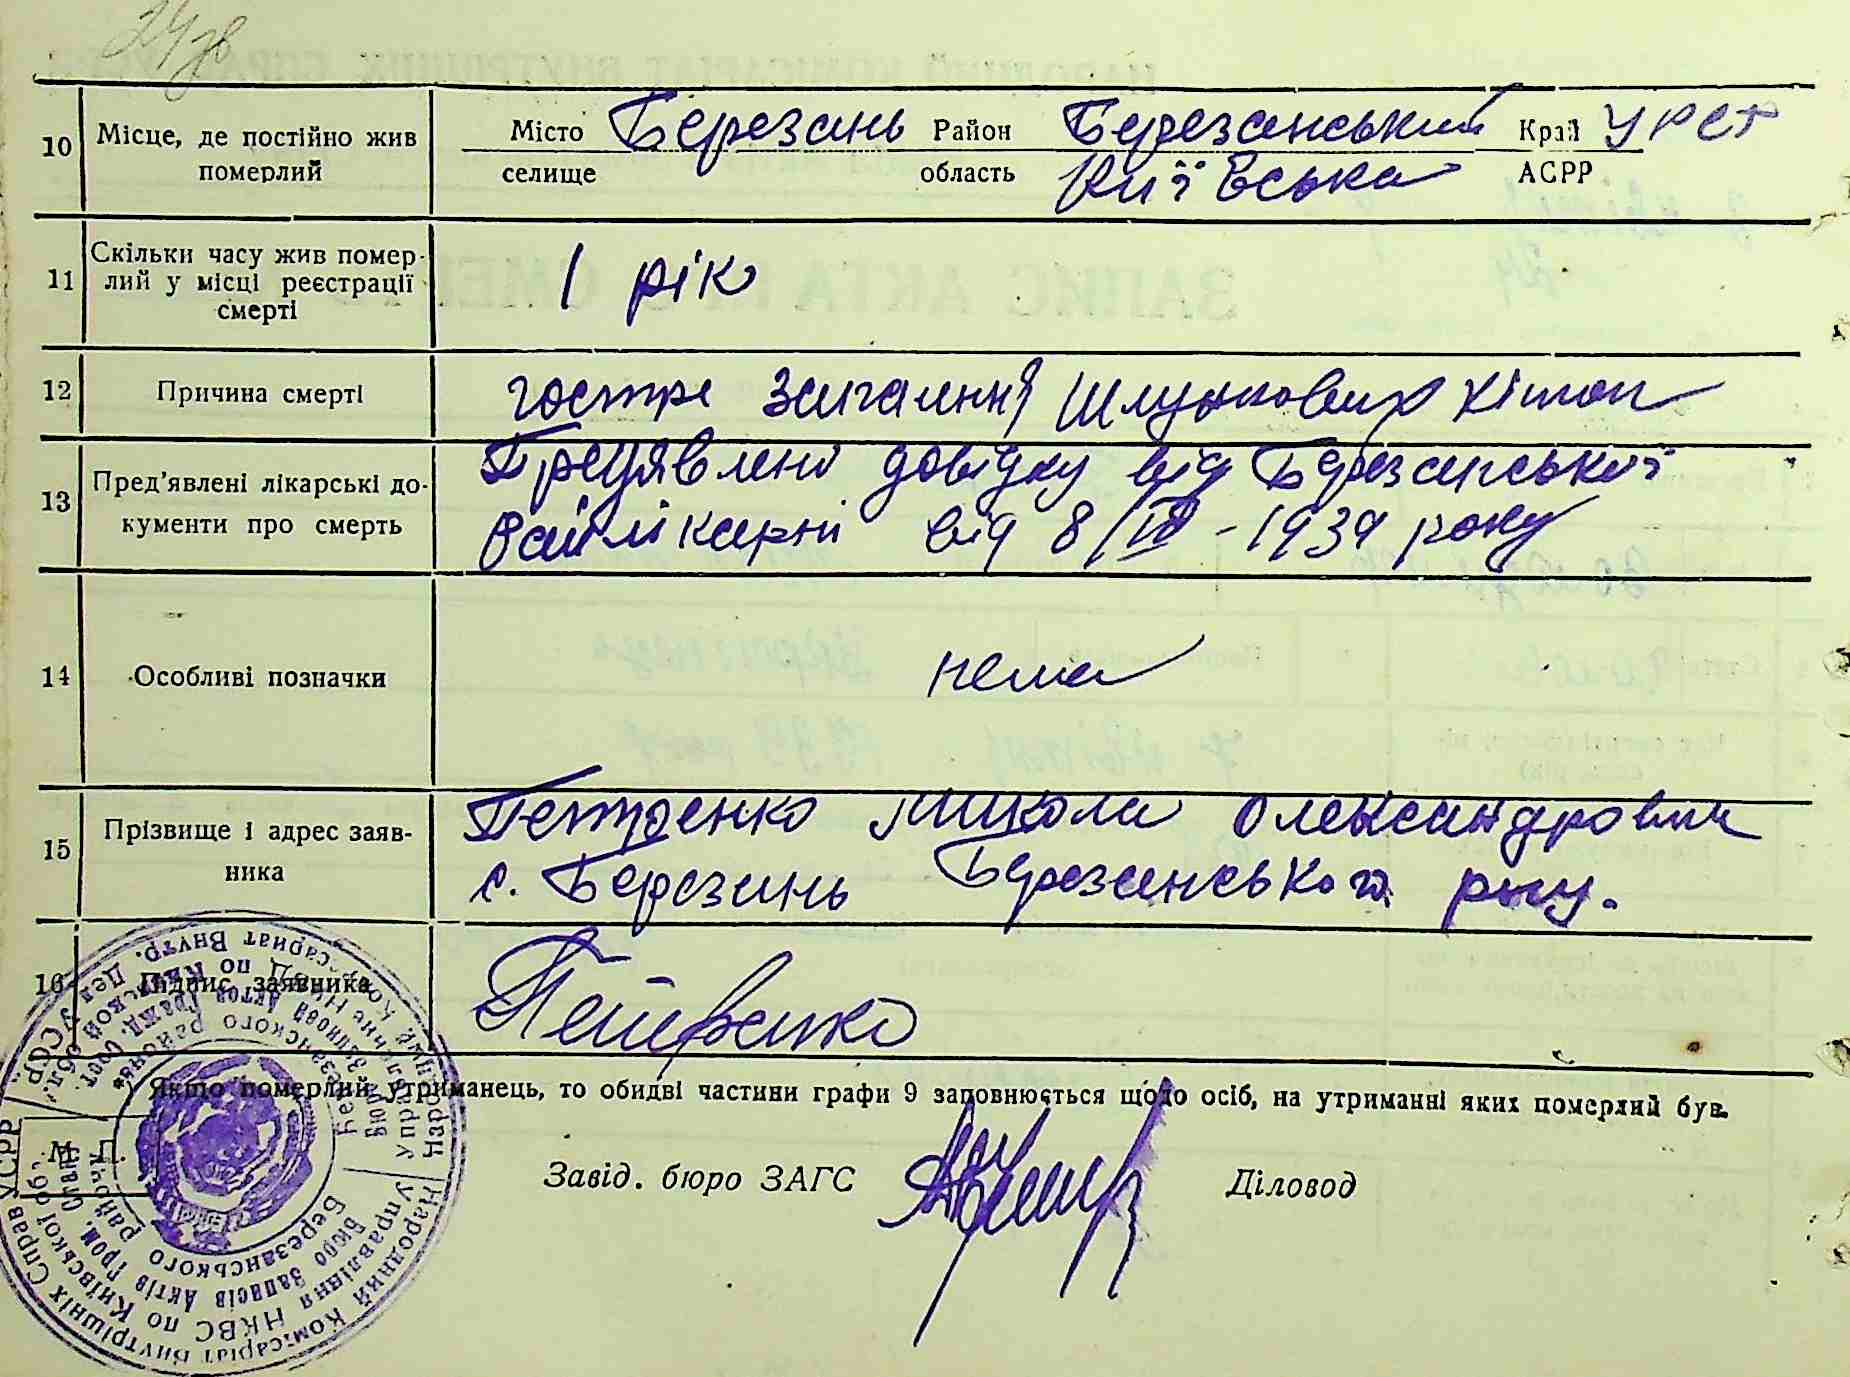 10 Місце, де постійно жив померлий
Місто Березань Район Березанський Край УРСР
селище область Київська АСРР
11 Скільки часу жив помер-
лий у місці реєстрації
смерті
1 рік
12 Причина смерті
гостре запалення шлункових кішок
13 Пред'явлені лікарські до-
кументи про смерть
довідку від Березанської
Райлікарні від 8/IV-1939 року
14 Особливі позначки
нема
15 Прізвище і адрес заяв-
ника
Петренко Микола Олександрович
с. Березань Березанського р-ну.
16 Підпис заявника
Петренко
*) Якщо померлий утриманець, то обидві частини графи 9 заповнюється щодо осіб, на утриманні яких померлий був.
М. П.
Завід. бюро ЗАГС Діловод
Народний Комісаріат Внутрішніх Справ УСРР
Управління НКВС по Київській обл.
Бюро Записів Актів Гром. Стану
Березанського району